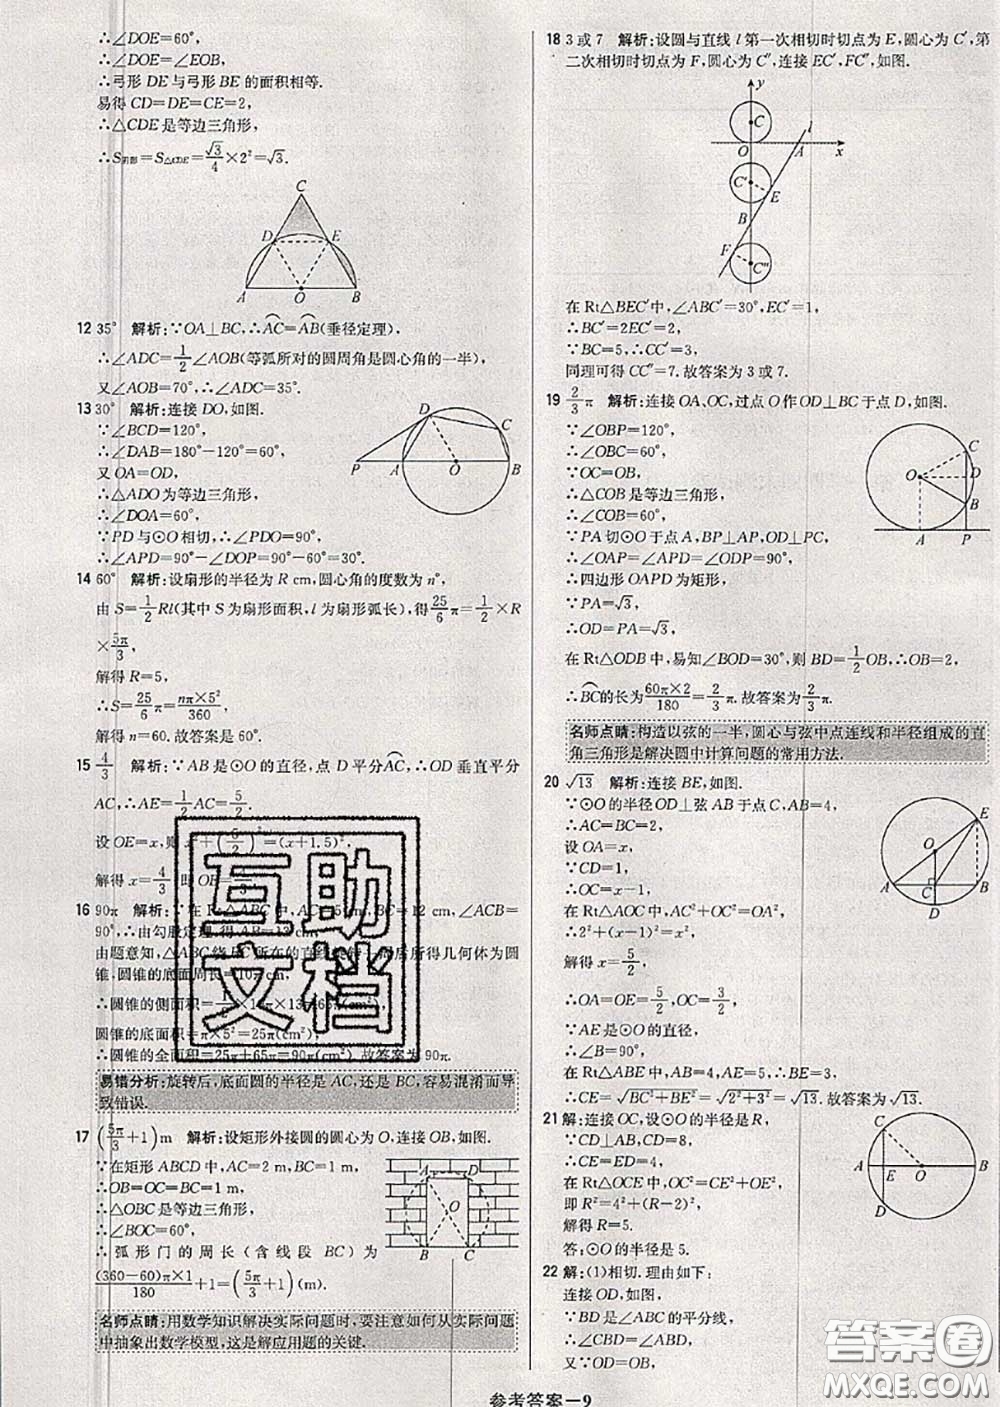 ∴∠DOE=60°,
∴∠DOE=∠EOB,
∴弓形 DE 与弓形 BE 的面积相等.
易得 CD=DE=CE=2,
∴△CDE 是等边三角形,
∴S阴影=S△CDE=√3/4×2²=√3.
C
D
E
A
O
B
12 35° 解析:∵OA⊥BC,∴AC=AB(垂径定理),
∴∠ADC=1/2∠AOB(等弧所对的圆周角是圆心角的一半),
又∠AOB=70°,∴∠ADC=35°.
13 30° 解析:连接 DO,如图.
∵∠BCD=120°,
∴∠DAB=180°-120°=60°,
又 OA=OD,
∴△ADO 为等边三角形,
∴∠DOA=60°,
∵PD 与⊙O 相切,∴∠PDO=90°,
∴∠APD=90°-∠DOP=90°-60°=30°.
D
C
P
A
O
B
14 60° 解析:设扇形的半径为 R cm,圆心角的度数为 n°,
由 S=1/2Rl(其中 S 为扇形面积,l 为扇形弧长),得25/6π=1/2×R
×5π/3,
解得 R=5,
∴S=25/6π=nπ×5²/360,
解得 n=60.故答案是 60°.
15 4/3 解析:∵AB 是⊙O 的直径,点 D 平分AC,∴OD 垂直平分
AC,∴AE=1/2AC=5/2.
设 OE=x,则 x²+(5/2)²=(x+1.5)²,
解得 x=4/3,即 OE=4/3.
16 90π 解析:∵在 Rt△ABC 中,AC=5 cm,BC=12 cm,∠ACB=
90°,∴由勾股定理,得 AB=13 cm,
由题意知,△ABC 绕 BC 所在的直线旋转一周后所得几何体为圆
锥,圆锥的底面周长=10π(cm),
∴圆锥的侧面积=1/2×10π×13=65π(cm²),
圆锥的底面积=π×5²=25π(cm²),
∴圆锥的全面积=25π+65π=90π(cm²).故答案为 90π.
易错分析:旋转后,底面圆的半径是 AC,还是 BC,容易混淆而导
致错误.
17 (5π/3+1)m 解析:设矩形外接圆的圆心为 O,连接 OB,如图.
∵在矩形 ABCD 中,AC=2 m,BC=1 m,
∴OB=OC=BC=1 m,
∴△OBC 是等边三角形,
∴∠BOC=60°,
∴弧形门的周长(含线段 BC)为
(360-60)π×1/180+1=(5π/3+1)(m).
A
D
O
B
C
名师点睛:用数学知识解决实际问题时,要注意如何从实际问题
中抽象出数学模型,这是解应用题的关键.
18 3 或 7 解析:设圆与直线 l 第一次相切时切点为 E,圆心为 C′,第
二次相切时切点为 F,圆心为 C″,连接 EC′,FC″,如图.
y
C
l
O
A
x
C′
E
B
F
C″
在 Rt△BEC′中,∠ABC′=30°,EC′=1,
∴BC′=2EC′=2,
∵BC=5,∴CC′=3,
同理可得 CC″=7.故答案为 3 或 7.
19 2/3π 解析:连接 OA、OC,过点 O 作 OD⊥BC 于点 D,如图.
∵∠OBP=120°,
∴∠OBC=60°,
∵OC=OB,
∴△COB 是等边三角形,
∴∠COB=60°,
∵PA 切⊙O 于点 A,BP⊥AP,OD⊥BC,
∴∠OAP=∠APD=∠ODP=90°,
∴四边形 OAPD 为矩形,
∵PA=√3,
∴OD=PA=√3,
在 Rt△ODB 中,易知∠BOD=30°,则 BD=1/2OB,∴OB=2,
∴BC的长为60π×2/180=2/3π.故答案为2/3π.
C
D
O
B
A
P
名师点睛:构造以弦的一半,圆心与弦中点连线和半径组成的直
角三角形是解决圆中计算问题的常用方法.
20 √13 解析:连接 BE,如图.
∵⊙O 的半径 OD⊥弦 AB 于点 C,AB=4,
∴AC=BC=2,
设 OA=x,
∵CD=1,
∴OC=x-1,
在 Rt△AOC 中,AC²+OC²=OA²,
∴2²+(x-1)²=x²,
解得 x=5/2,
∴OA=OE=5/2,OC=3/2,
∵AE 是⊙O 的直径,
∴∠ABE=90°,
在 Rt△ABE 中,AB=4,AE=5,
∴BE=3,
∴CE=√BC²+BE²=√2²+3²=√13.故答案为√13.
E
O
A
C
B
D
21 解:连接 OC,设⊙O 的半径是 R,
∵CD⊥AB,CD=8,
∴CE=ED=4,
在 Rt△OCE 中,OC²=CE²+OE²,
即 R²=4²+(R-2)².
解得 R=5.
答:⊙O 的半径是 5.
C
A
E
O
B
D
22 解:(1)相切.理由如下:
连接 OD,如图,
∵BD 是∠ABC 的平分线,
∴∠CBD=∠ABD,
又∵OD=OB,
互助
文档
答案圈
MXQE.COM
参考答案—9